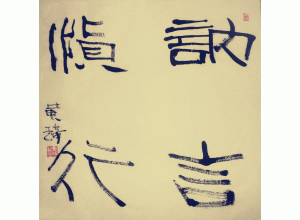 訥言
慎行